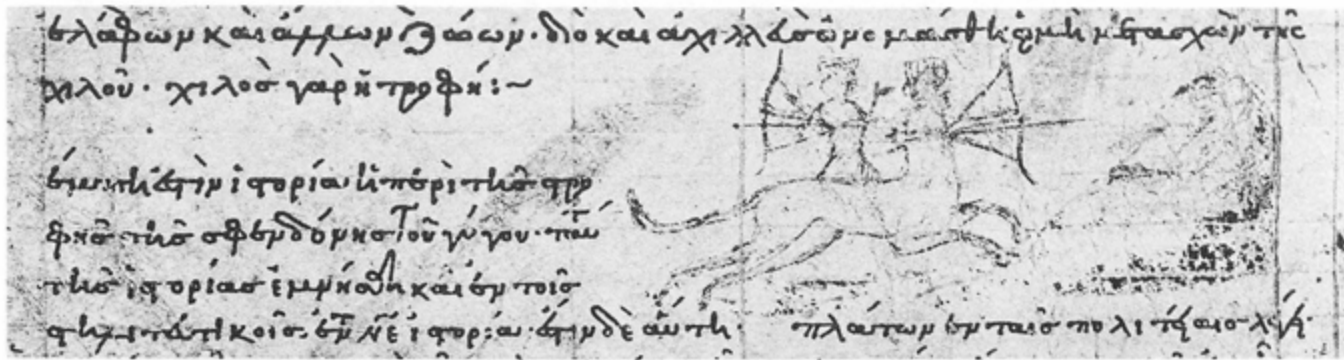 ἐλάφων καὶ ἄλλων ζώων· διὸ καὶ ἀχιλλεὺς ὠνομάσθη ὁ μὴ μετασχὼν τῆς
χιλοῦ· χιλὸς γὰρ ἡ τροφή:~
ἐστὶν ἱστορία ἡ περὶ τῆς στρο
φῆς τῆς σφενδόνης τοῦ γύγου· ταύ
της ἱστορίας ἐμνήσθη καὶ ἐν τοῖς
στηλιτευτικοῖς· ἱστορία· ἔστιν δὲ αὕτη· πλάτων ἐν ταῖς πολιτείαις